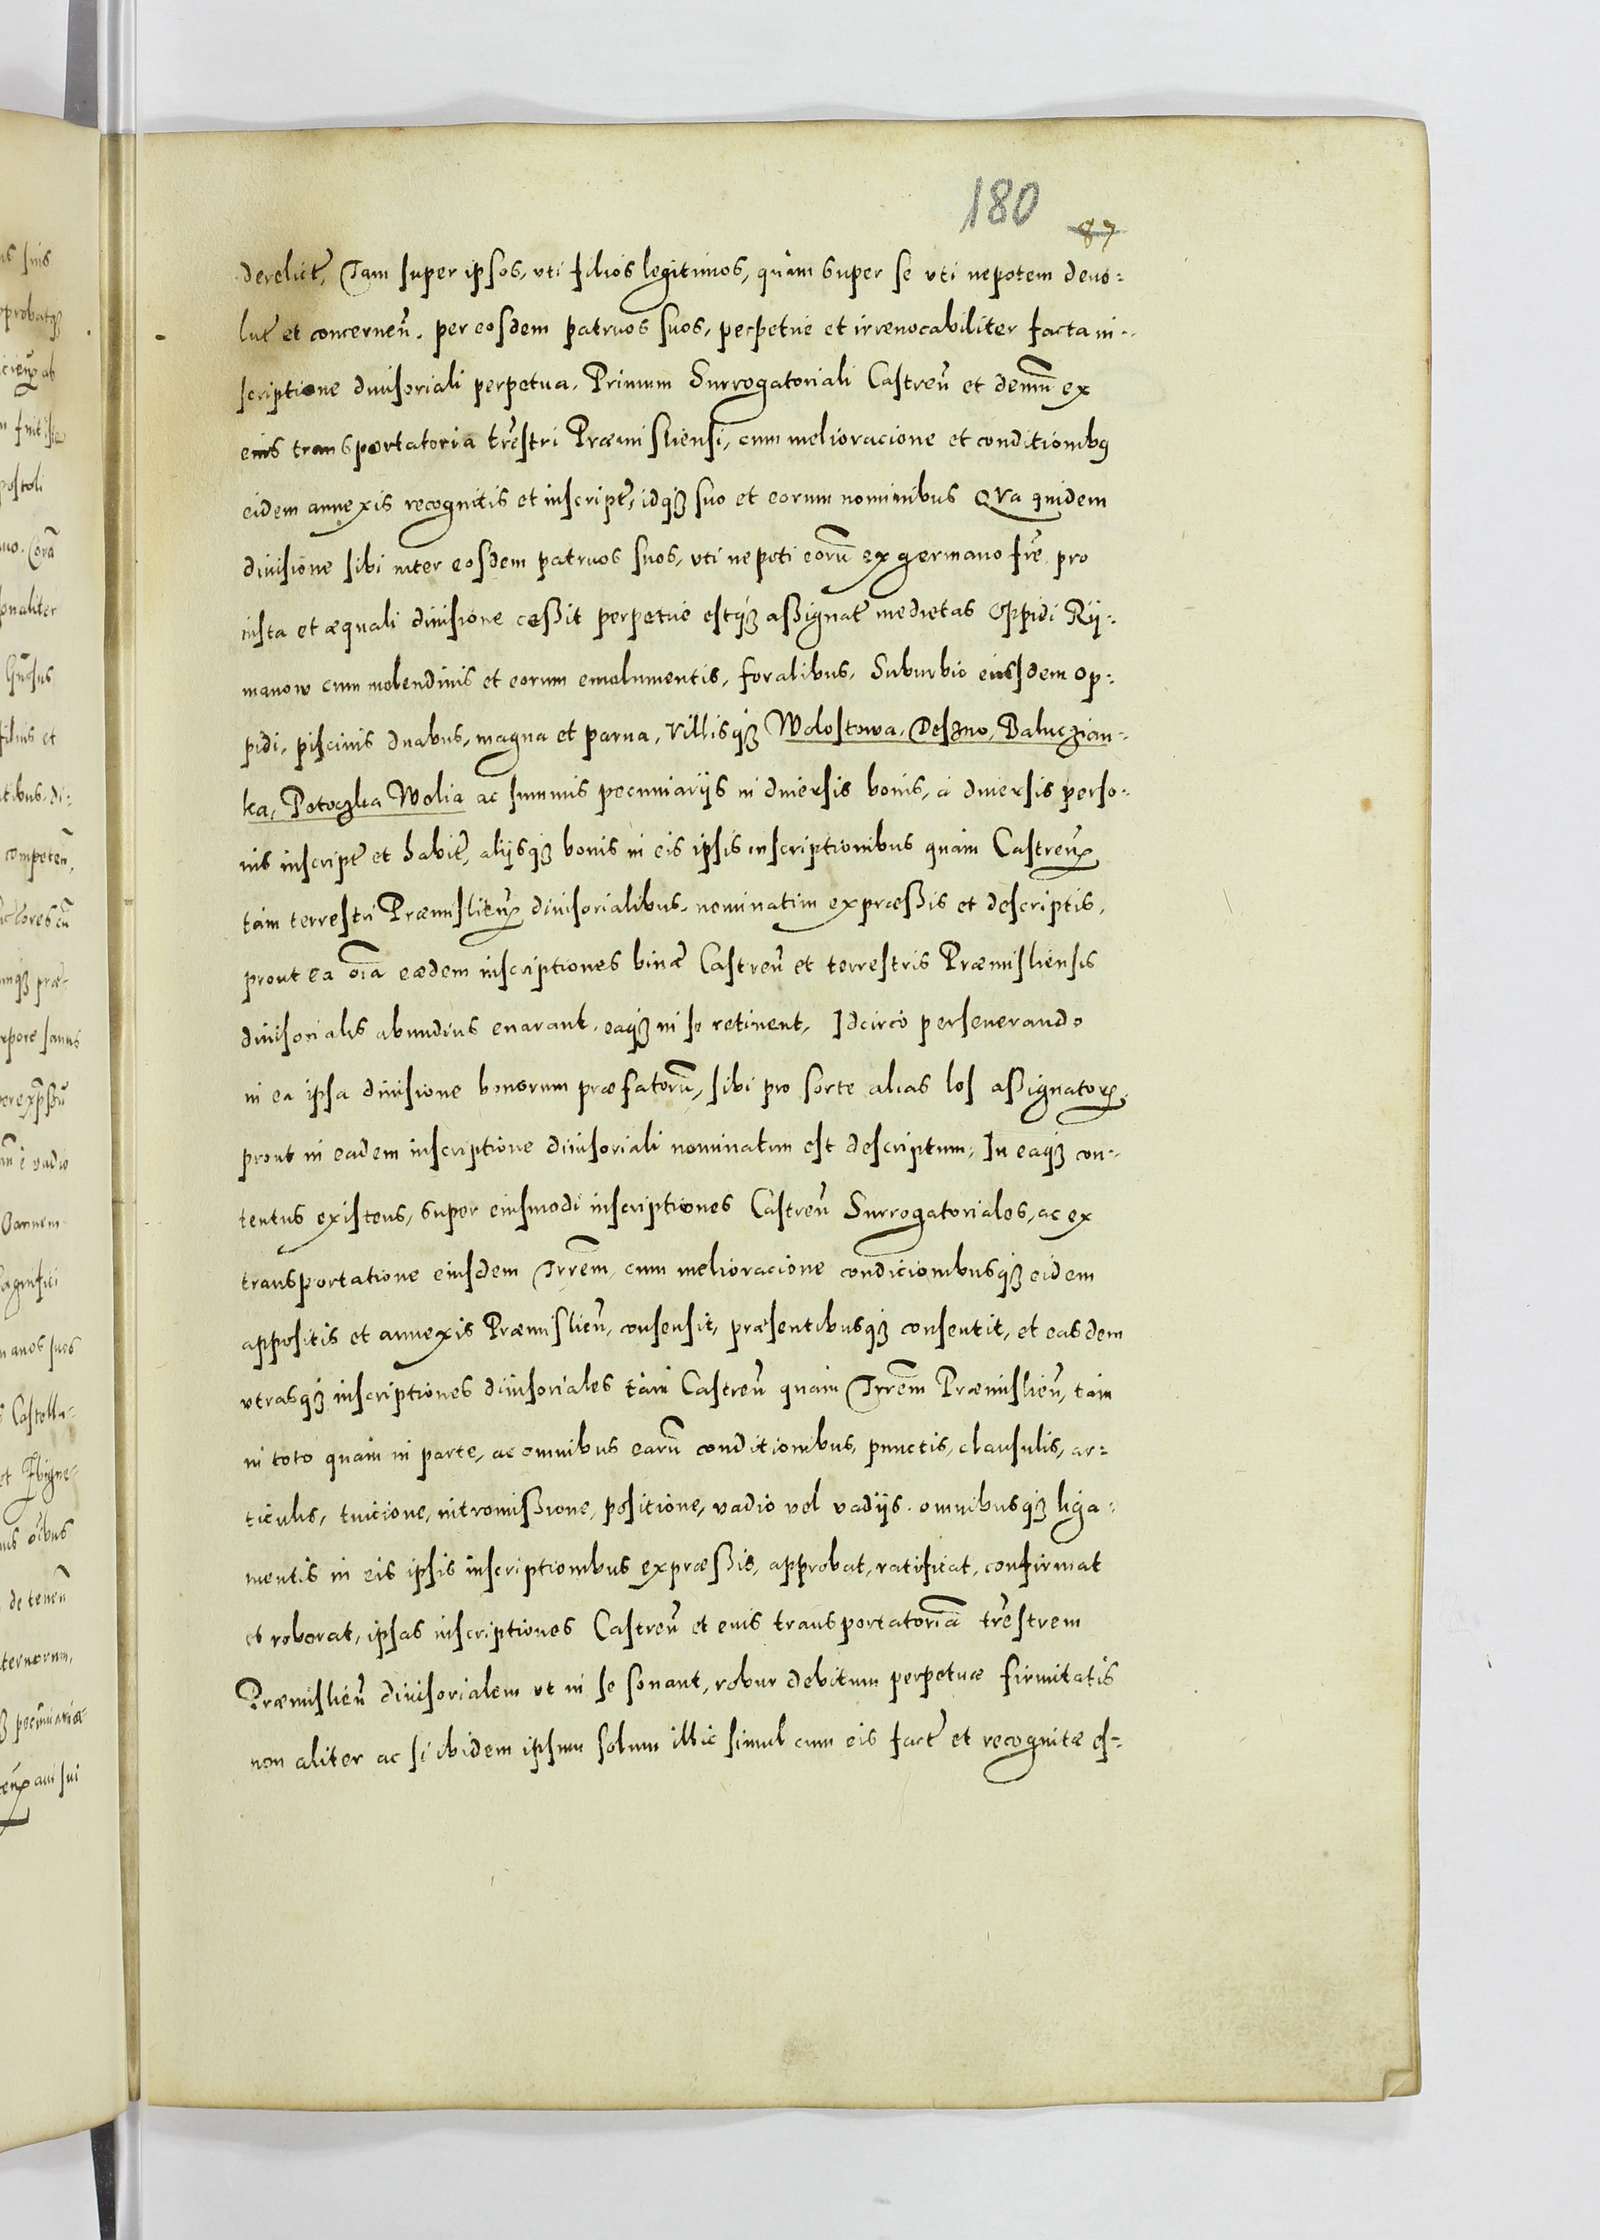 180
87
derelict, Tam super ipsos, vti filios legitimos, quàm super se vti nepotem deuo-
lut et concerneñ. per eosdem patruos suos, perpetue et irreuocabiliter facta in-
scriptione diuisoriali perpetua. Primum Surrogatoriali Castreñ et demũ ex
eius transportatoria trẽstri Præmisliensi, cum melioracione et conditionibꝫ
eidem annexis recognitis et inscript, idqꝫ suo et eorum nominibus Qva quidem
diuisione sibi inter eosdem patruos suos, vti nepoti eorũ ex germano frẽ pro
iusta et æquali diuisione cessit perpetue estqꝫ assignat medietas Oppidi Rÿ-
manow cum molendinis et eorum emolumentis, foralibus, Suburbio eiusdem Op-
pidi, piscinis duabus, magna et parua, Villisqꝫ Wolostowa, Deszno, Baluczian-
ka, Potoczka Wolia ac summis pecuniarijs in diuersis bonis, à diuersis perso-
nis inscript et habit, alijsqꝫ bonis in eis ipsis inscriptionibus quàm Castreñ
tàm terrestri Præmislieñ diuisorialibus, nominatim expræssis et descriptis,
prout ea oĩa eædem inscriptiones binæ Castreñ et terrestris Præmisliensis
diuisorialis abundius enarant, eaqꝫ in se retinent, Idcircò perseuerando
in ea ipsa diuisione bonorum præfatorũ, sibi pro sorte alias los assignatorꝫ
prout in eadem inscriptione diuisoriali nominatim est descriptum, In eaqꝫ con-
tentus existens, super eiusmodi inscriptiones Castreñ Surrogatoriales, ac ex
transportatione eiusdem Trrẽm, cum melioracione condicionibusqꝫ eidem
appositis et annexis Præmislieñ, consensit, præsentibusqꝫ consentit, et easdem
vtrasqꝫ inscriptiones diuisoriales tàm Castreñ quàm Trrẽm Præmislieñ, tàm
in toto quàm in parte, ac omnibus earũ conditionibus, punctis, clausulis, ar-
ticulis, tuicione, intromissione, positione, vadio vel vadijs. omnibusqꝫ liga-
mentis in eis ipsis inscriptionibus expræssis, approbat, ratificat, confirmat
et roborat, ipsas inscriptiones Castreñ et eius transportatoriã trẽstrem
Præmislieñ diuisorialem vt in se sonant, robur debitum perpetuæ firmitatis
non aliter ac si ibidem ipsum solum illic simul cum eis fact et recognitæ es-